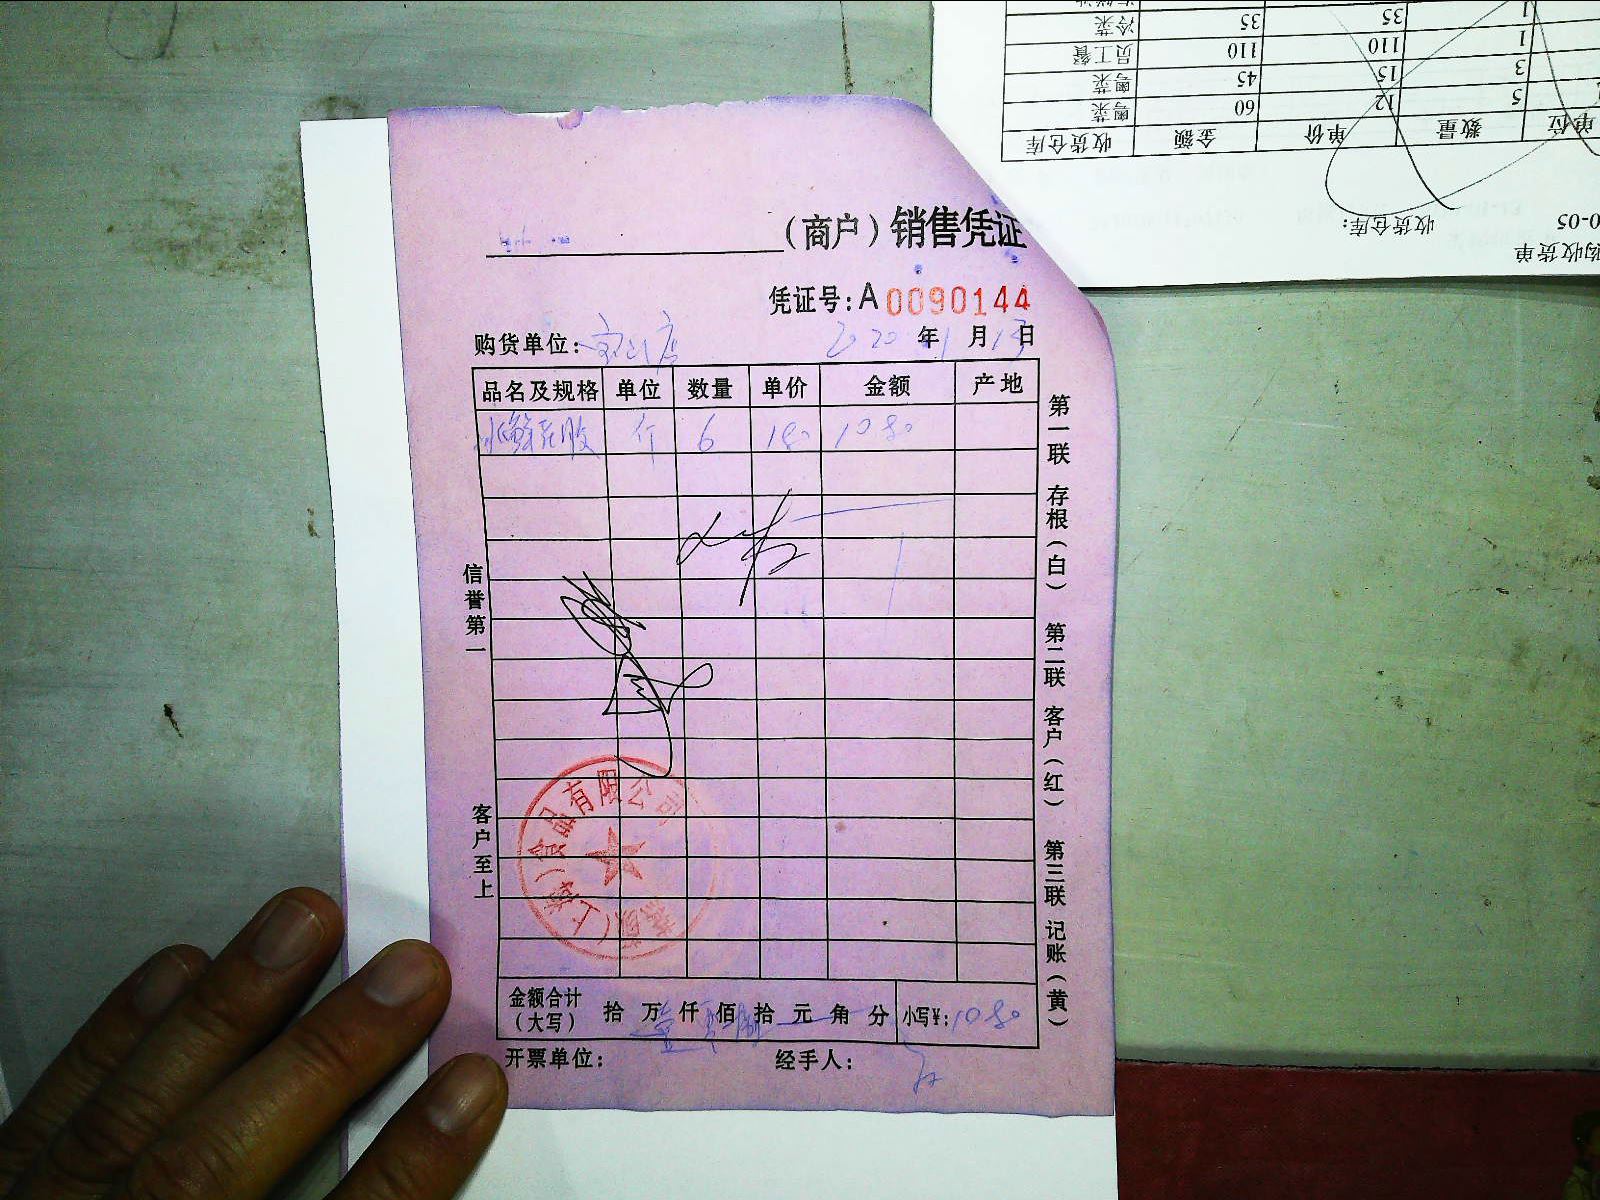 （商户）销售凭证
凭证号：A 0090144
购货单位：宝山店 2020年1月13日
品名及规格 单位 数量 单价 金额 产地
冰鲜花胶 斤 6 180 1080
第一联 存根（白） 第二联 客户（红） 第三联 记账（黄）
信誉第一
客户至上
（上海）食品有限公司
金额合计（大写） 拾 万 壹 仟 零 佰 捌 拾 元 角 分 小写¥：1080
开票单位： 经手人：
购收货单
0-05 收货仓库：
单位 数量 单价 金额 收货仓库
5 12 60 粤菜
3 15 45 粤菜
1 110 110 员工餐
1 35 35 冷菜